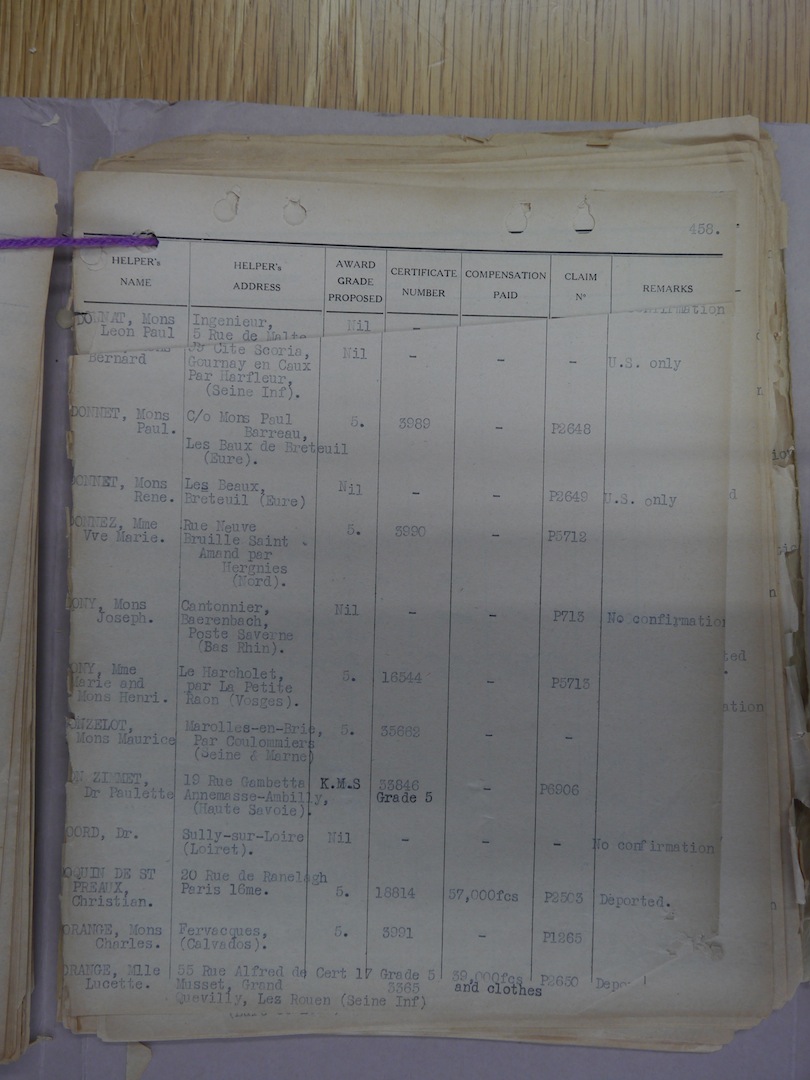 458.
HELPER's NAME HELPER's ADDRESS AWARD GRADE PROPOSED CERTIFICATE NUMBER COMPENSATION PAID CLAIM No REMARKS
DONNAT, Mons Ingenieur, Nil - confirmation
Leon Paul 5 Rue de Malte
Cite Scoria, Nil - - - U.S. only
Bernard Gournay en Caux
Par Harfleur,
(Seine Inf).
DONNET, Mons C/o Mons Paul 5. 3989 - P2648
Paul. Barreau,
Les Baux de Breteuil
(Eure).
DONNET, Mons Les Beaux, Nil - - P2649 U.S. only
Rene. Breteuil (Eure)
DONNEZ, Mme Rue Neuve 5. 3990 - P5712
Vve Marie. Bruille Saint
Amand par
Hergnies
(Nord).
DONY, Mons Cantonnier, Nil - - P713 No confirmation
Joseph. Baerenbach,
Poste Saverne
(Bas Rhin).
ONY, Mme Le Harcholet, 5. 16544 - P5713
Marie and par La Petite
Mons Henri. Raon (Vosges).
ONZELOT, Marolles-en-Brie, 5. 35662 - -
Mons Maurice Par Coulommiers
(Seine & Marne)
N ZIMMET, 19 Rue Gambetta K.M.S 53846 - P6906
Dr Paulette Annemasse-Ambilly, Grade 5
(Haute Savoie).
OORD, Dr. Sully-sur-Loire Nil - - - No confirmation
(Loiret).
OQUIN DE ST 20 Rue de Ranelagh
PREAUX, Paris 16me. 5. 18814 57,000fcs P2503 Deported.
Christian.
ORANGE, Mons Fervacques, 5. 3991 - P1265
Charles. (Calvados).
ORANGE, Mlle 55 Rue Alfred de Cert 17 Grade 5 39,000fcs P2650 Depo
Lucette. Musset, Grand 3365 and clothes
Quevilly, Lez Rouen (Seine Inf)